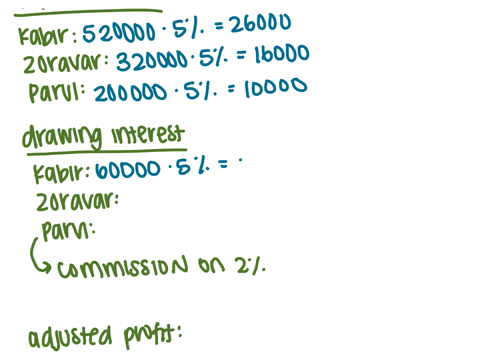 Kabir: 520000 · 5% = 26000
Zoravar: 320000 · 5% = 16000
Parul: 200000 · 5% = 10000
drawing interest
Kabir: 60000 · 5% =
Zoravar:
Parul:
commission on 2%
adjusted profit: